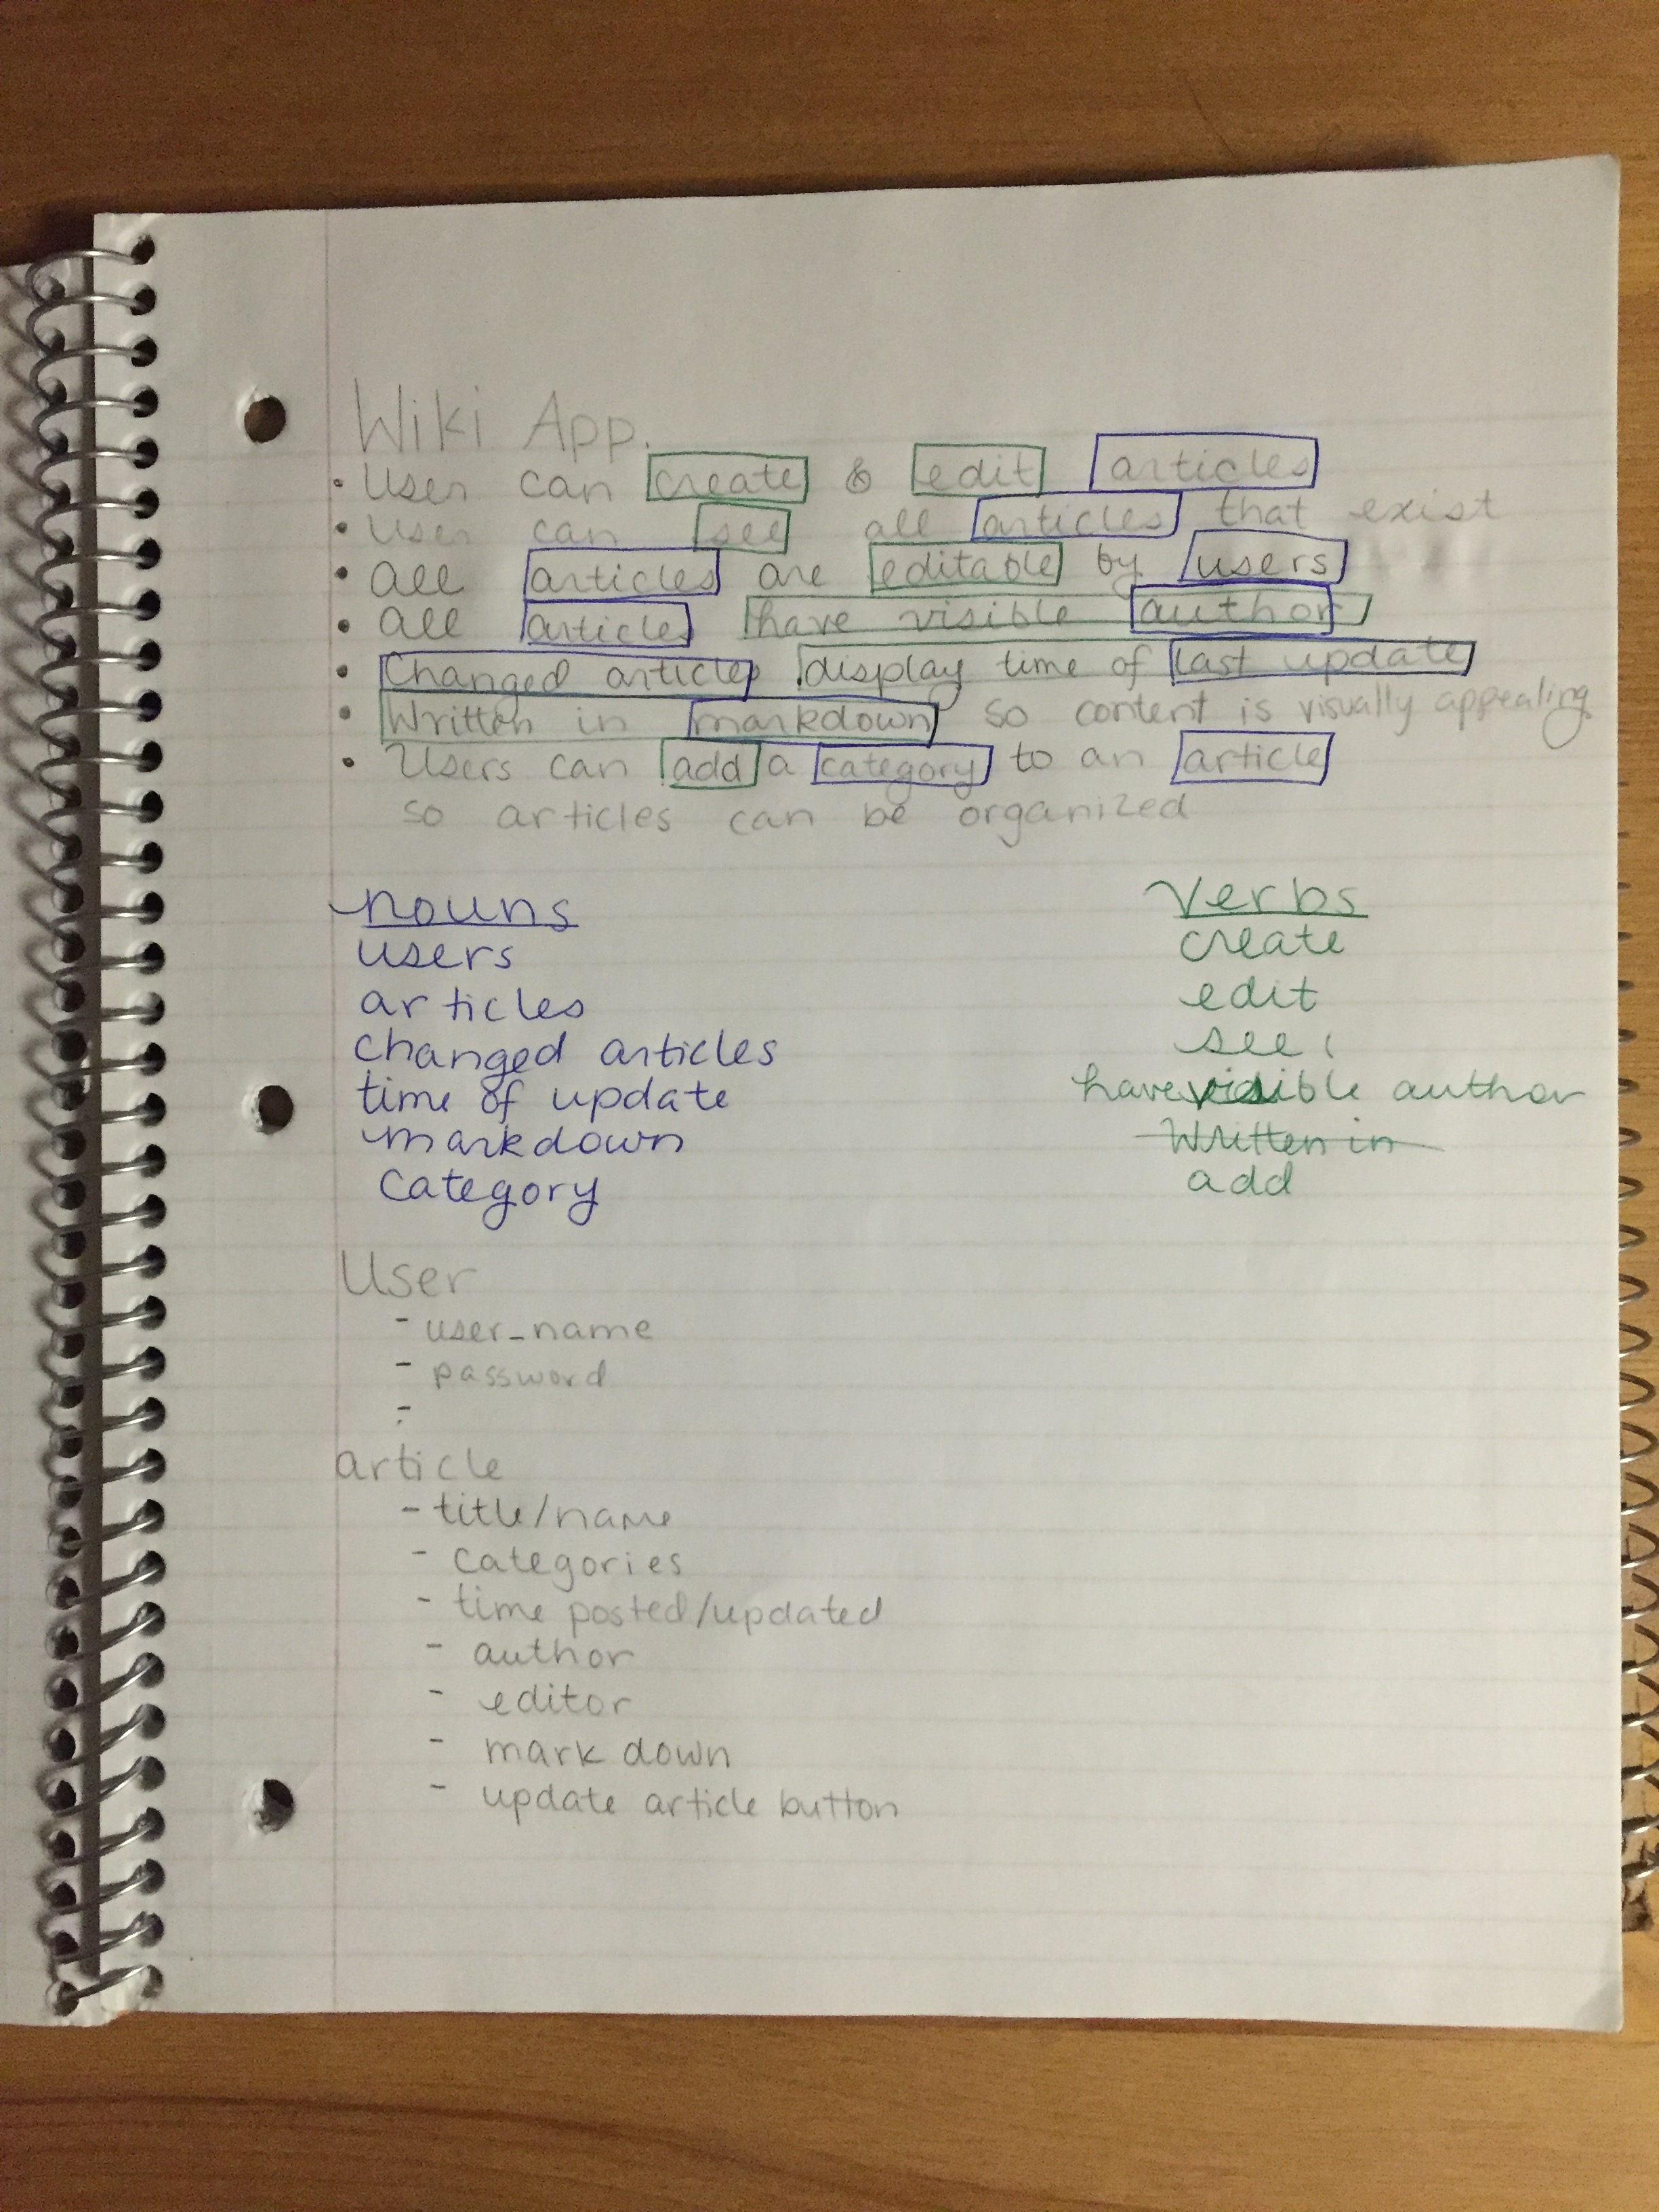 Wiki App.
• User can create & edit articles
• User can see all articles that exist
• all articles are editable by users
• all articles have visible author
• Changed articles display time of last update
• Written in markdown so content is visually appealing
• Users can add a category to an article
so articles can be organized
nouns verbs
users create
articles edit
changed articles see
time of update have visible author
markdown Written in
category add
User
- user_name
- password
-
article
- title/name
- categories
- time posted/updated
- author
- editor
- mark down
- update article button